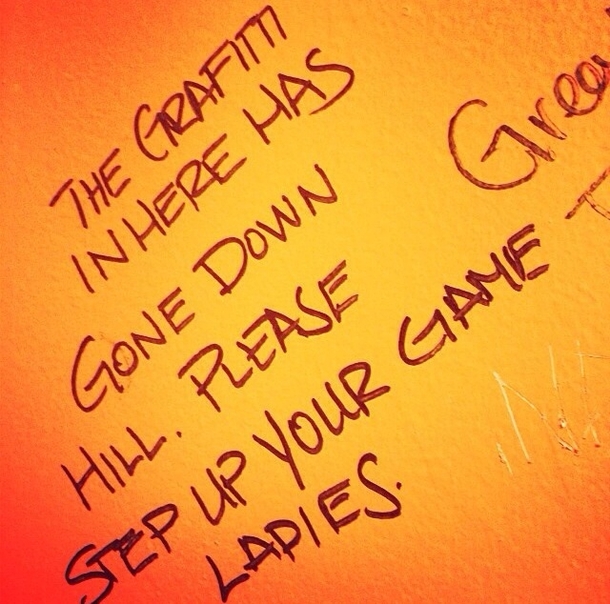 THE GRAFITTI
IN HERE HAS
GONE DOWN
HILL. PLEASE
STEP UP YOUR GAME
LADIES.